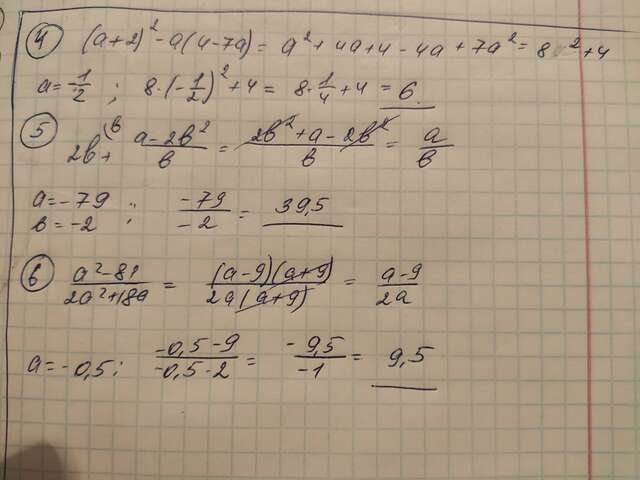 4 (a+2)² - a(4-7a) = a²+4a+4-4a+7a² = 8 ²+4
a = 1/2 ; 8·(-1/2)²+4 = 8·1/4+4 = 6
5 2b+ (b a-2b²/b = 2b²+a-2b²/b = a/b
a=-79
b=-2 ; -79/-2 = 39,5
6 a²-81/2a²+18a = (a-9)(a+9)/2a(a+9) = a-9/2a
a=-0,5; -0,5-9/-0,5·2 = -9,5/-1 = 9,5